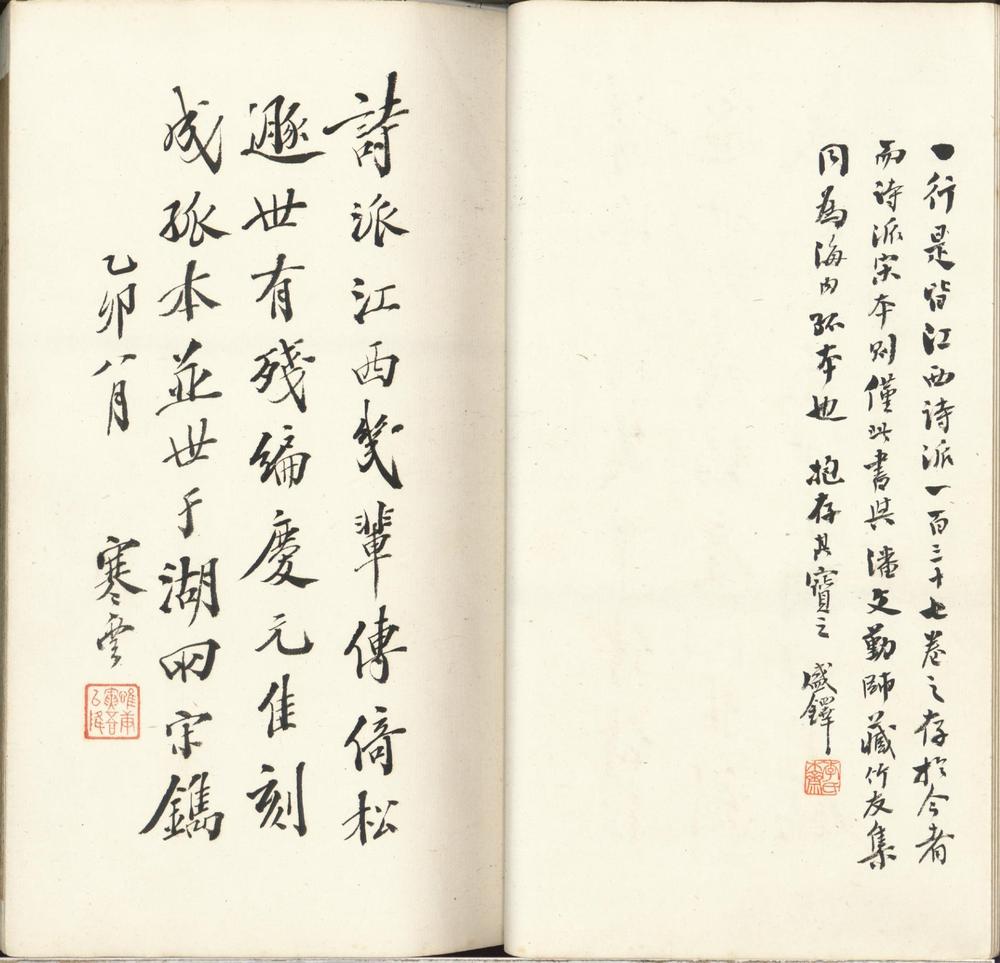 一行是皆江西诗派一百三十七卷之存於今者
而诗派宋本则僅此書與潘文勤師藏竹友集
同為海内孤本也 抱存其寶之 盛鐸
李氏
詩派江西幾輩傳倚松
遯世有殘編慶元佳刻
成孤本並世于湖四宋鐫
乙卯八月 寒雲